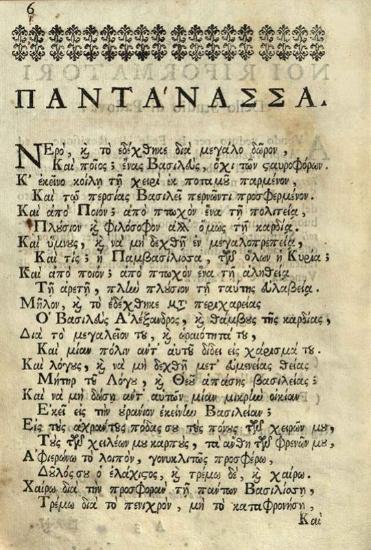 6
ΠΑΝΤΑ'ΝΑΣΣΑ.
ΝΕρὸ, κὶ τὸ ἐδέχθηκε διὰ μεγάλο δῶρον,
Καὶ ποῖος; ἕνας Βασιλεὺς, ὄχι τῶν σαυροφόρων.
Κ' ἐκεῖνο κοίλῃ τῇ χειρὶ ἐκ ποταμȣ παρμένον,
Καὶ τῷ περσίας Βασιλεῖ περνῶντι προσφερμένον.
Καὶ ἀπὸ Ποιὸν; ἀπὸ πτωχὸν ἕνα τῇ πολιτείᾳ,
Πλȣσιον κὶ φιλόσοφον ἀλλ' ὅμως τῇ καρδίᾳ.
Καὶ ὕμνȣς, κὶ νὰ μὴ δεχθῇ ἐν μεγαλοπρεπείᾳ,
Καὶ τίς; ἡ Παμβασίλισσα, τῶν ὅλων ἡ Κυρία;
Καὶ ἀπὸ ποιὸν; ἀπὸ πτωχὸν ἕνα τῇ ἀληθείᾳ
Τῇ ἀρετῇ, πλὴν πλȣσιον τῇ ταύτης εὐλαβείᾳ.
Μῆλον, κὶ τὸ ἐδέχθηκε μετὰ περιχαρείας
Ὁ Βασιλεὺς Ἀλέξανδρος, κὶ θάμβȣς τῆς καρδίας,
Διὰ τὸ μεγαλεῖον τȣ, κὶ ὡραιότητα τȣ,
Καὶ μίαν πόλιν ἀντ' αὐτȣ δίδει εἰς χάρισμά τȣ.
Καὶ λόγȣς, κὶ νὰ μὴ δεχθῇ μετ' εὐμενείας θείας
Μήτηρ τȣ Λόγȣ, κὶ Θεȣ ἁπάσης βασιλείας;
Καὶ νὰ μὴ δώσῃ ἀντ' αὐτῶν μίαν μικρὰν οἰκίαν
Ἐκεῖ εἰς τὴν ȣράνιον ἐκείνην Βασιλείαν;
Εἰς τȣς ἀχράντȣς πόδας σȣ τȣς πόνȣς τῶν χειρῶν μȣ,
Τȣς τῶν χειλέων μȣ καρπȣς, τὰ ἄνθη τῶν φρενῶν μȣ,
Ἀφιερώνω τὸ λοιπὸν, γονυκλιτῶς προσφέρω,
Δȣλός σȣ ὁ ἐλάχιστος, κὶ τρέμω δὲ, κὶ χαίρω.
Χαίρω διὰ τὴν προσφορὰν τῇ πάντων Βασιλίσσῃ,
Τρέμω διὰ τὸ πενιχρὸν, μὴ τὸ καταφρονήσῃ,
Καὶ